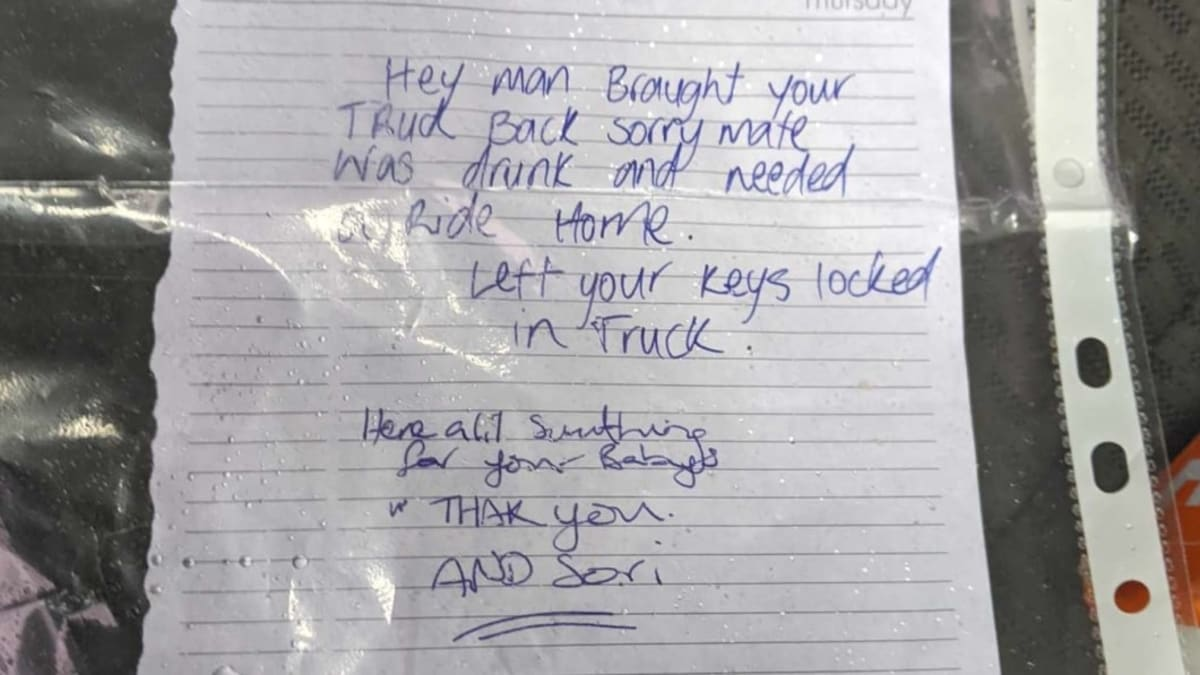 Thursday
Hey man Braught your
TRuck Back sorry mate
was drunk and needed
a Ride Home.
Left your keys locked
in Truck.
Here a lil sumthing
for your Babyg's
THAK you.
AND Sori